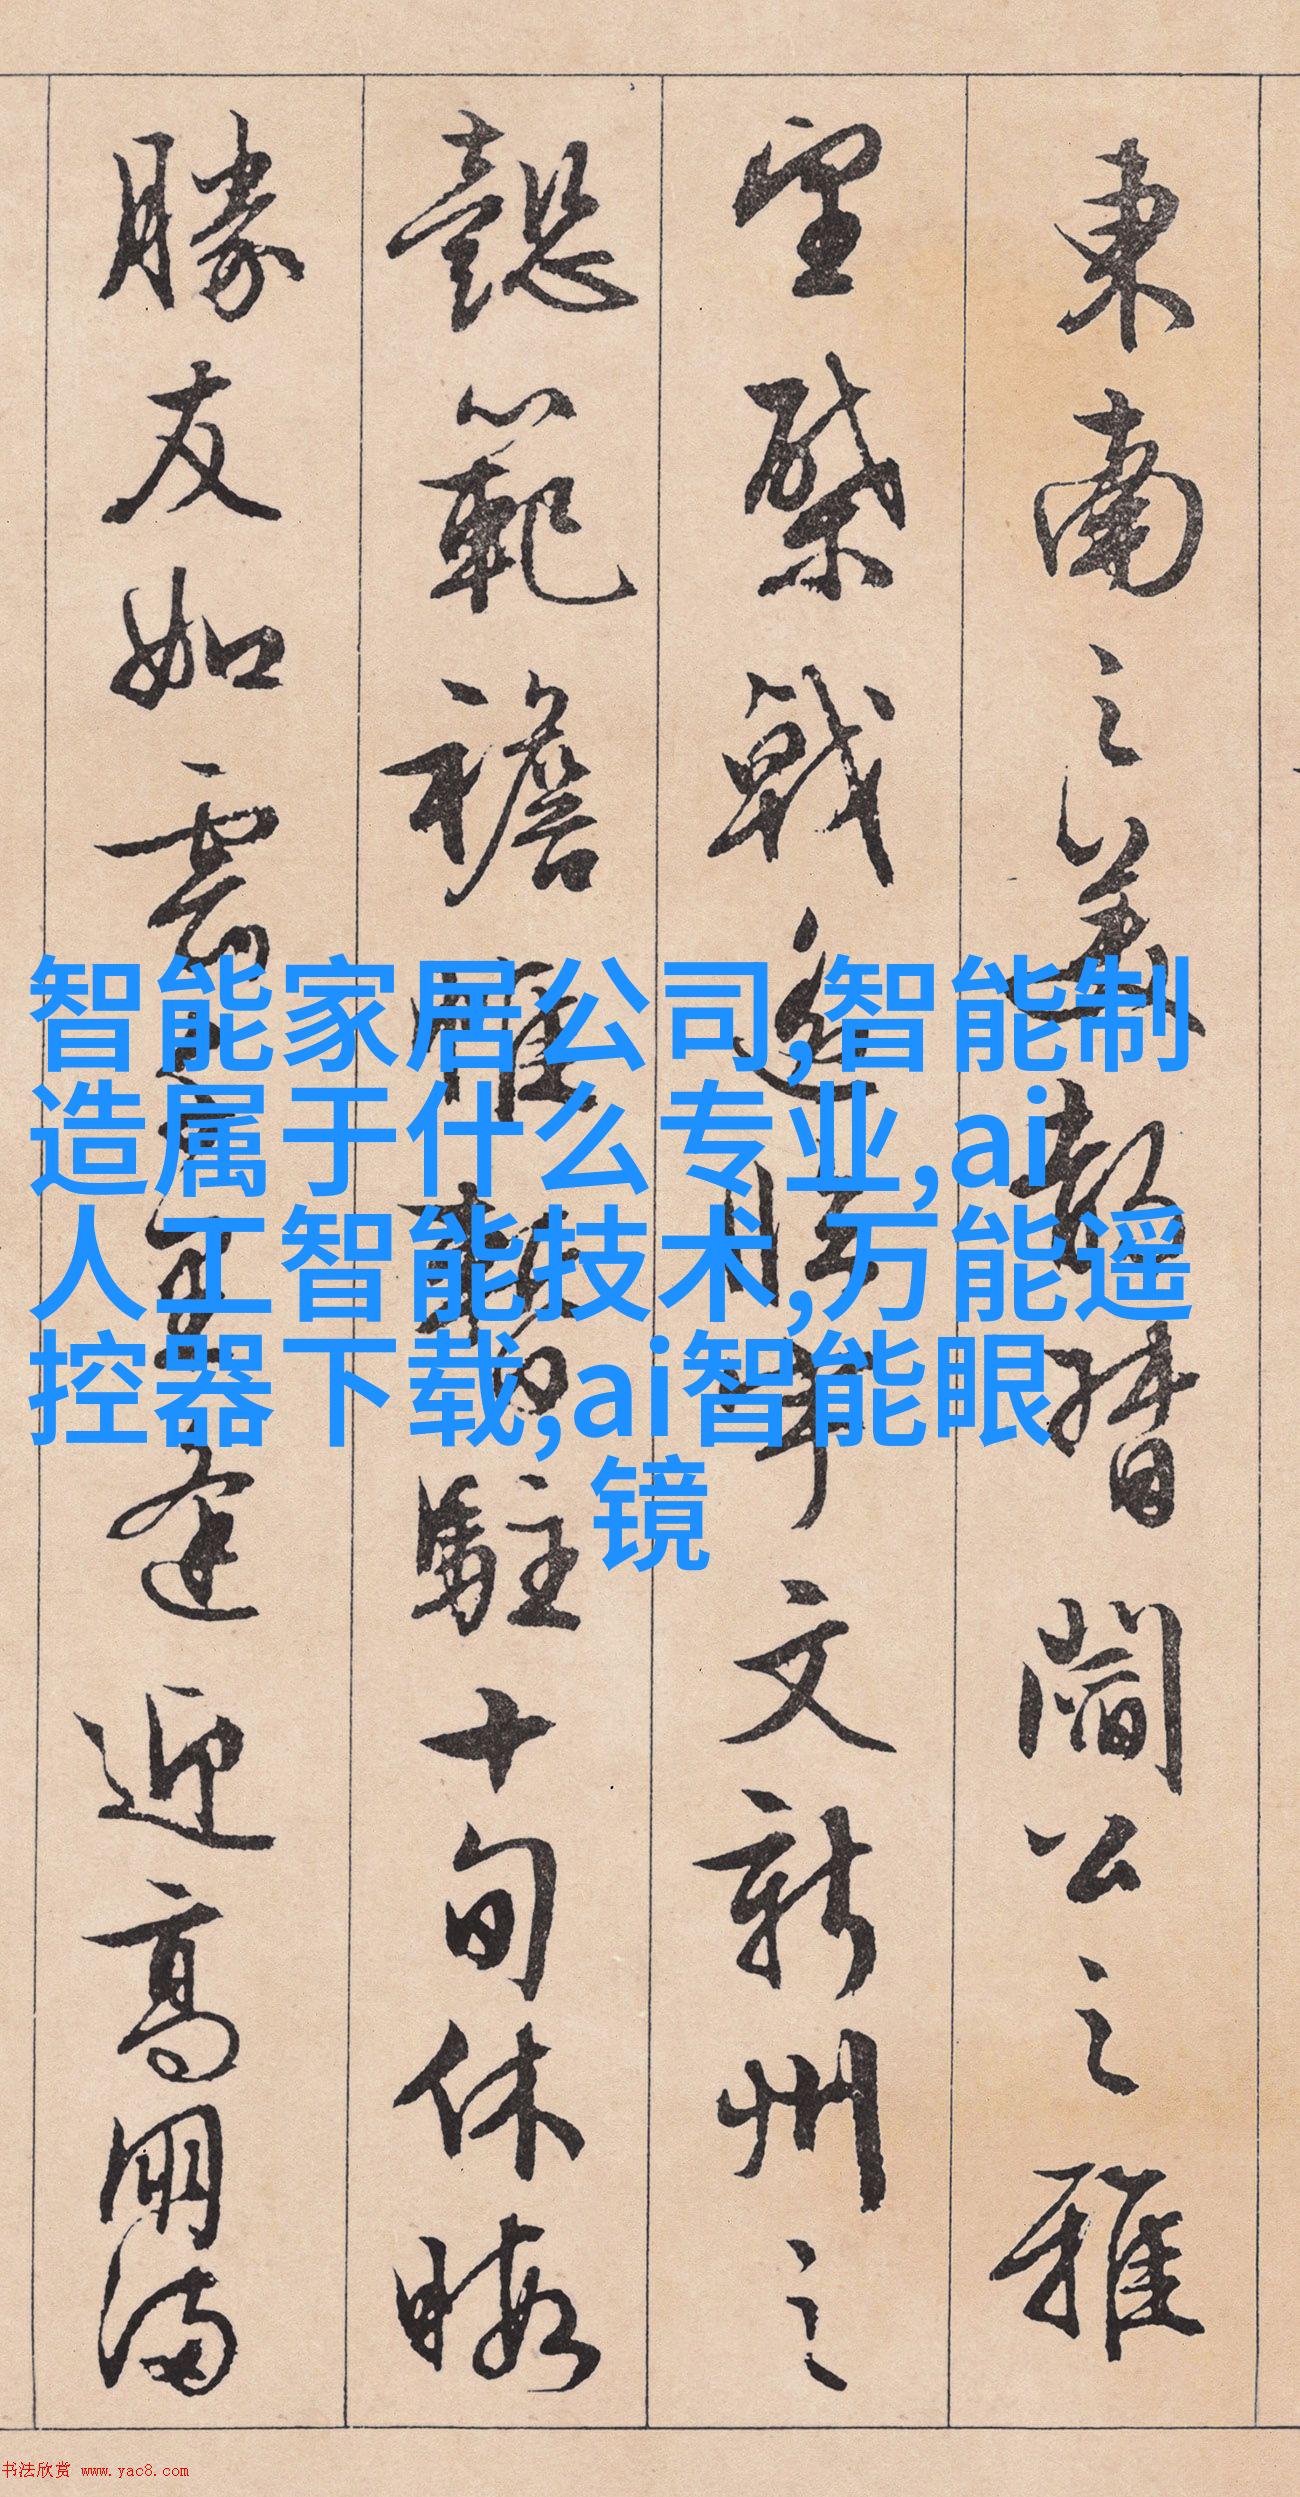 東南之美都督閻公之雅
望棨戟遥臨宇文新州之
懿範襜帷暫駐十旬休暇
勝友如雲千里逢迎高朋滿
智能家居公司,智能制
造属于什么专业,ai
人工智能技术,万能遥
控器下载,ai智能眼
镜
书法欣赏 www.yac8.com